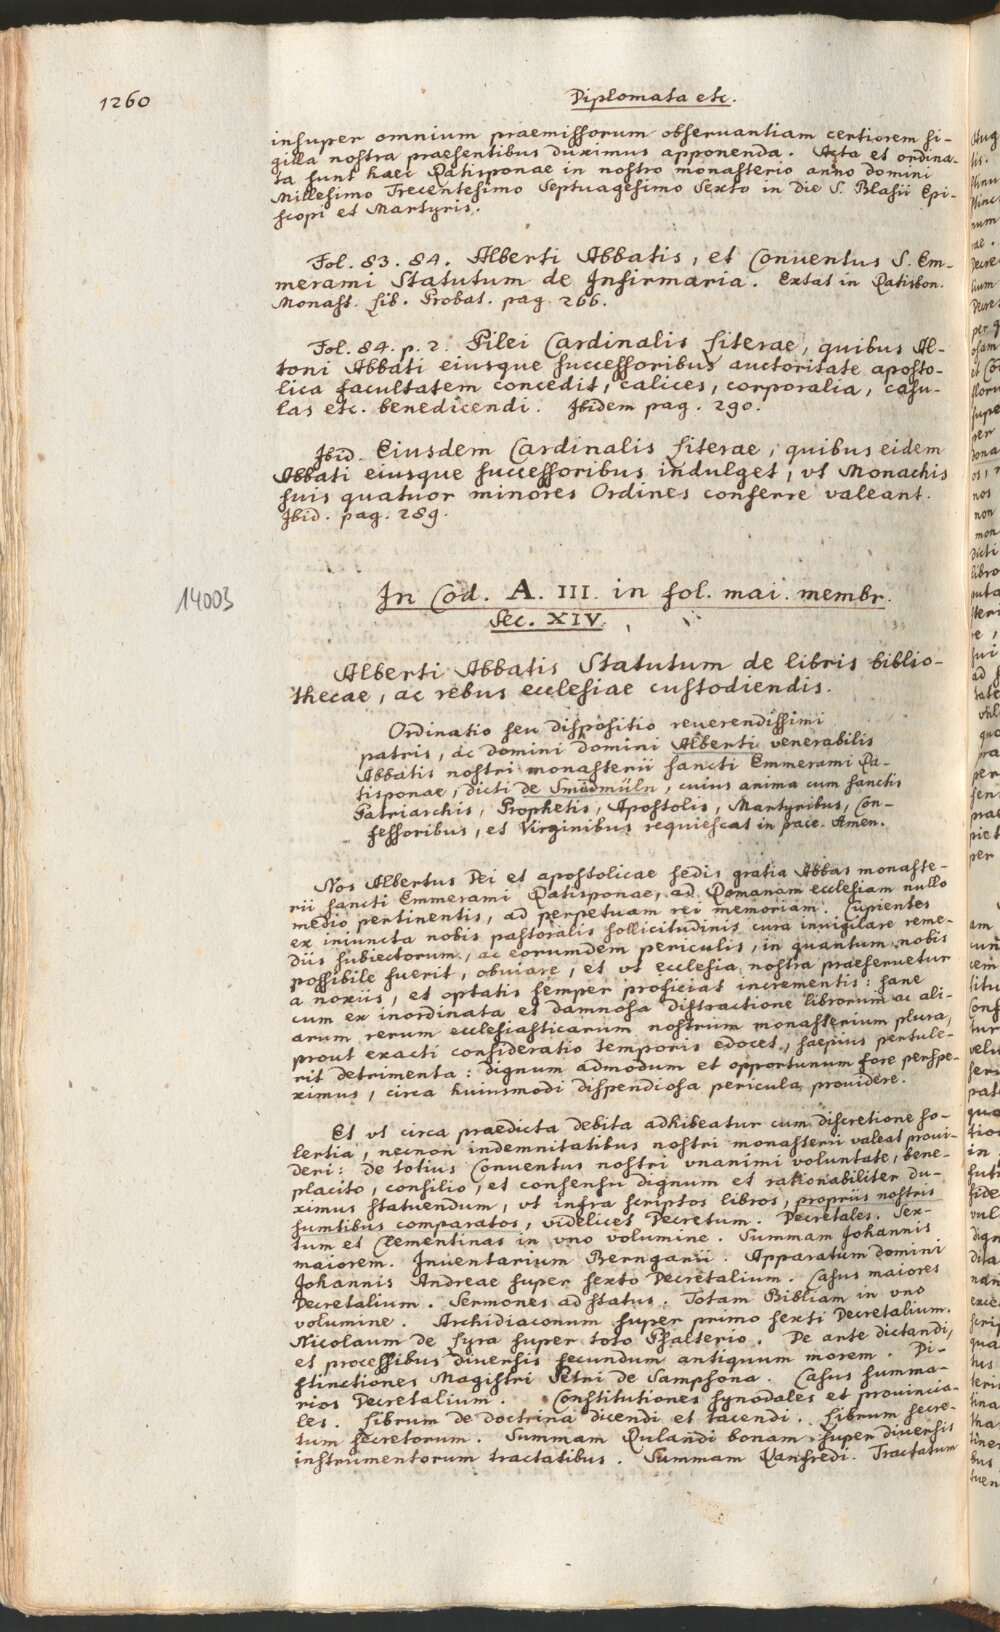 1260
Diplomata etc.
insuper omnium praemissorum obseruantiam certiorem si-
gilla nostra praesentibus duximus apponenda. Acta et ordina-
ta sunt haec Ratisponae in nostro monasterio anno domini
Millesimo Trecentesimo Septuagesimo Sexto in die S. Blasii Epi-
scopi et Martyris.
Fol. 83. 84. Alberti Abbatis, et Conventus S. Em-
merami Statutum de Infirmaria. Extat in Ratisbon.
Monast. Lib. Probat. pag. 266.
Fol. 84. p. 2. Pilei Cardinalis Literae, quibus Al-
toni Abbati eiusque successoribus auctoritate aposto-
lica facultatem concedit, calices, corporalia, casu-
las etc. benedicendi. Ibidem pag. 290.
Ibid. Eiusdem Cardinalis Literae, quibus eidem
Abbati eiusque successoribus indulget, vt Monachis
suis quatuor minores Ordines conferre valeant.
Ibid. pag. 289.
14003
In Cod. A. III. in fol. mai. membr.
Sec. XIV.
Alberti Abbatis Statutum de libris biblio-
thecae, ac rebus ecclesiae custodiendis.
Ordinatio seu dispositio reuerendissimi
patris, ac domini domini Alberti venerabilis
Abbatis nostri monasterii sancti Emmerami Ra-
tisponae, dicti de Smidmüln, cuius anima cum sanctis
Patriarchis, Prophetis, Apostolis, Martyribus, Con-
fessoribus, et Virginibus requiescat in pace. Amen.
Nos Albertus Dei et apostolicae sedis gratia Abbas monaste-
rii sancti Emmerami Ratisponae, ad Romanam ecclesiam nullo
medio pertinentis, ad perpetuam rei memoriam. Cupientes
ex iniuncta nobis pastoralis sollicitudinis cura inuigilare reme-
diis subiectorum, ac eorumdem periculis, in quantum nobis
possibile fuerit, obuiare, et vt ecclesia nostra praeseruetur
a noxiis, et optatis semper proficiat incrementis: sane
cum ex inordinata et damnosa distractione librorum ac ali-
arum rerum ecclesiasticarum nostrum monasterium plura,
prout exacti consideratio temporis edocet, saepius pertule-
rit detrimenta: dignum admodum et opportunum fore perspe-
ximus, circa huiusmodi dispendiosa pericula prouidere.
Et vt circa praedicta debita adhibeatur cum discretione so-
lertia, necnon indemnitatibus nostri monasterii valeat proui-
deri: de totius Conventus nostri vnanimi voluntate, bene-
placito, consilio, et consensu dignum et rationabiliter du-
ximus statuendum, vt infra scriptos libros, propriis nostris
sumtibus comparatos, videlicet Decretum. Decretales. Sex-
tum et Clementinas in vno volumine. Summam Johannis
maiorem. Inventarium Berngarii. Apparatum domini
Johannis Andreae super sexto Decretalium. Casus maiores
Decretalium. Sermones ad status. Totam Bibliam in vno
volumine. Archidiaconum super primo sexti Decretalium.
Nicolaum de Lyra super toto Psalterio. De arte dictandi,
et processibus diuersis secundum antiquum morem. Di-
stinctiones Magistri Petri de Samphona. Casus summa-
rios Decretalium. Constitutiones synodales et prouincia-
les. Librum de doctrina dicendi et tacendi. Librum secre-
tum secretorum. Summam Rulandi bonam super diuersis
instrumentorum tractatibus. Summam Ranfredi. Tractatum